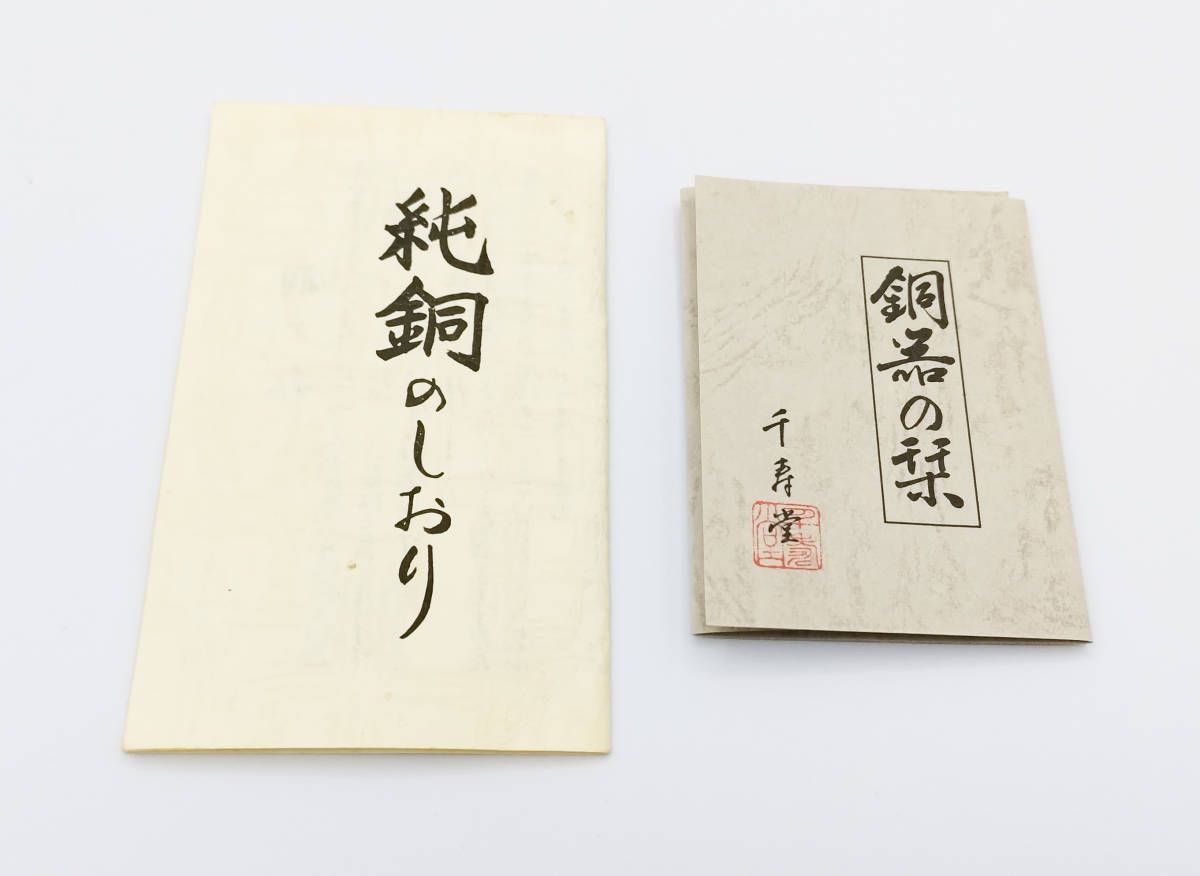 純銅のしおり
銅器の栞
千寿堂